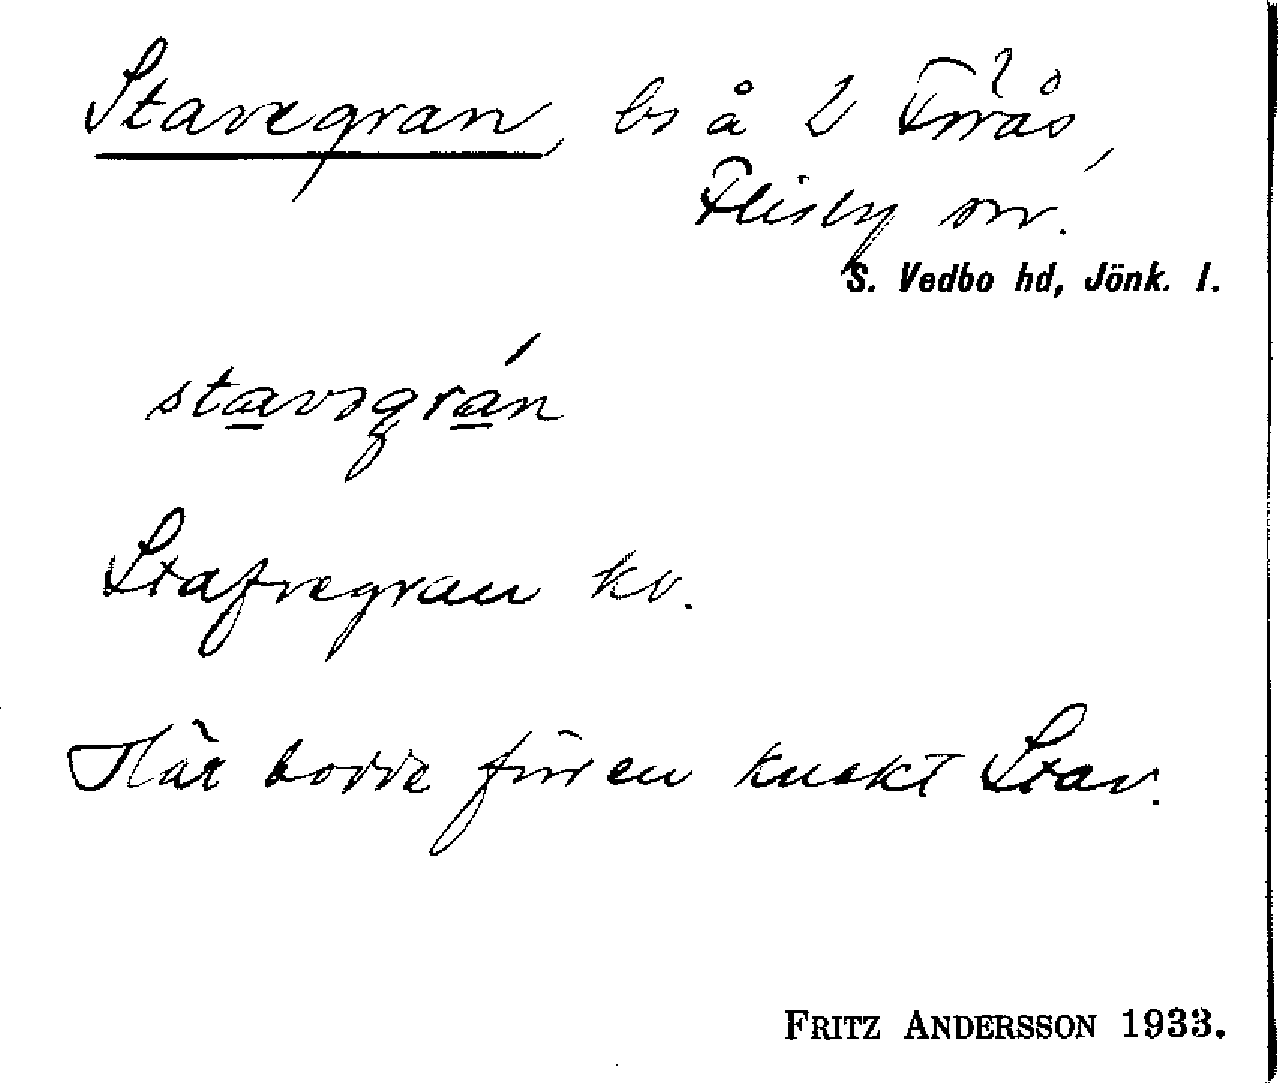 Stavegran, bs å 2 Förås,
Flisby sn.
S. Vedbo hd, Jönk. l.
stavəgrán
Stafvegran kv.
Här bodde förr en knekt Stav.
FRITZ ANDERSSON 1933.